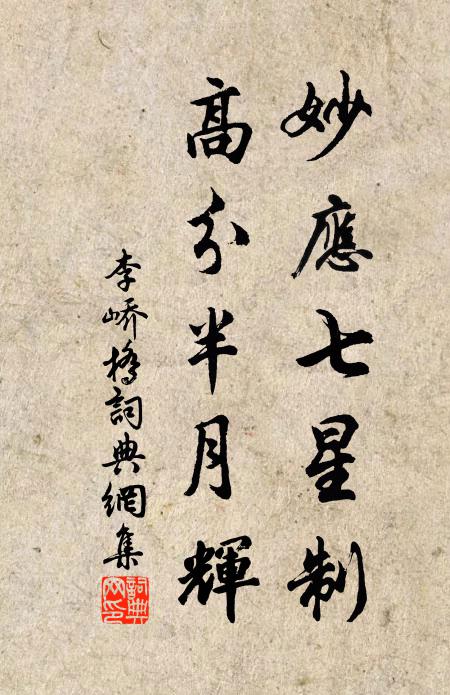 妙應七星制
高分半月輝
李嶠橋詞典網集
詞典
网印